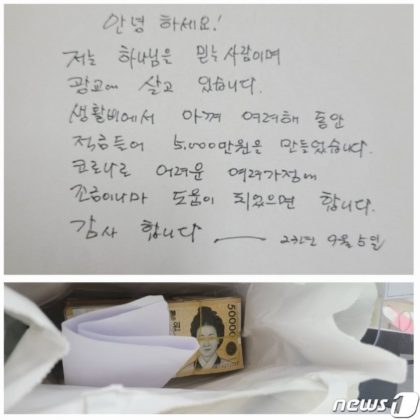 안녕하세요!
저는 하나님은 믿는 사람이며
광교에 살고 있습니다.
생활비에서 아껴 여러해 동안
적금들어 5,000만원은 만들었습니다.
코로나로 어려운 여러가정에
조금이나마 도움이 되었으면 합니다.
감사 합니다 9월 5일
50000
뉴스1